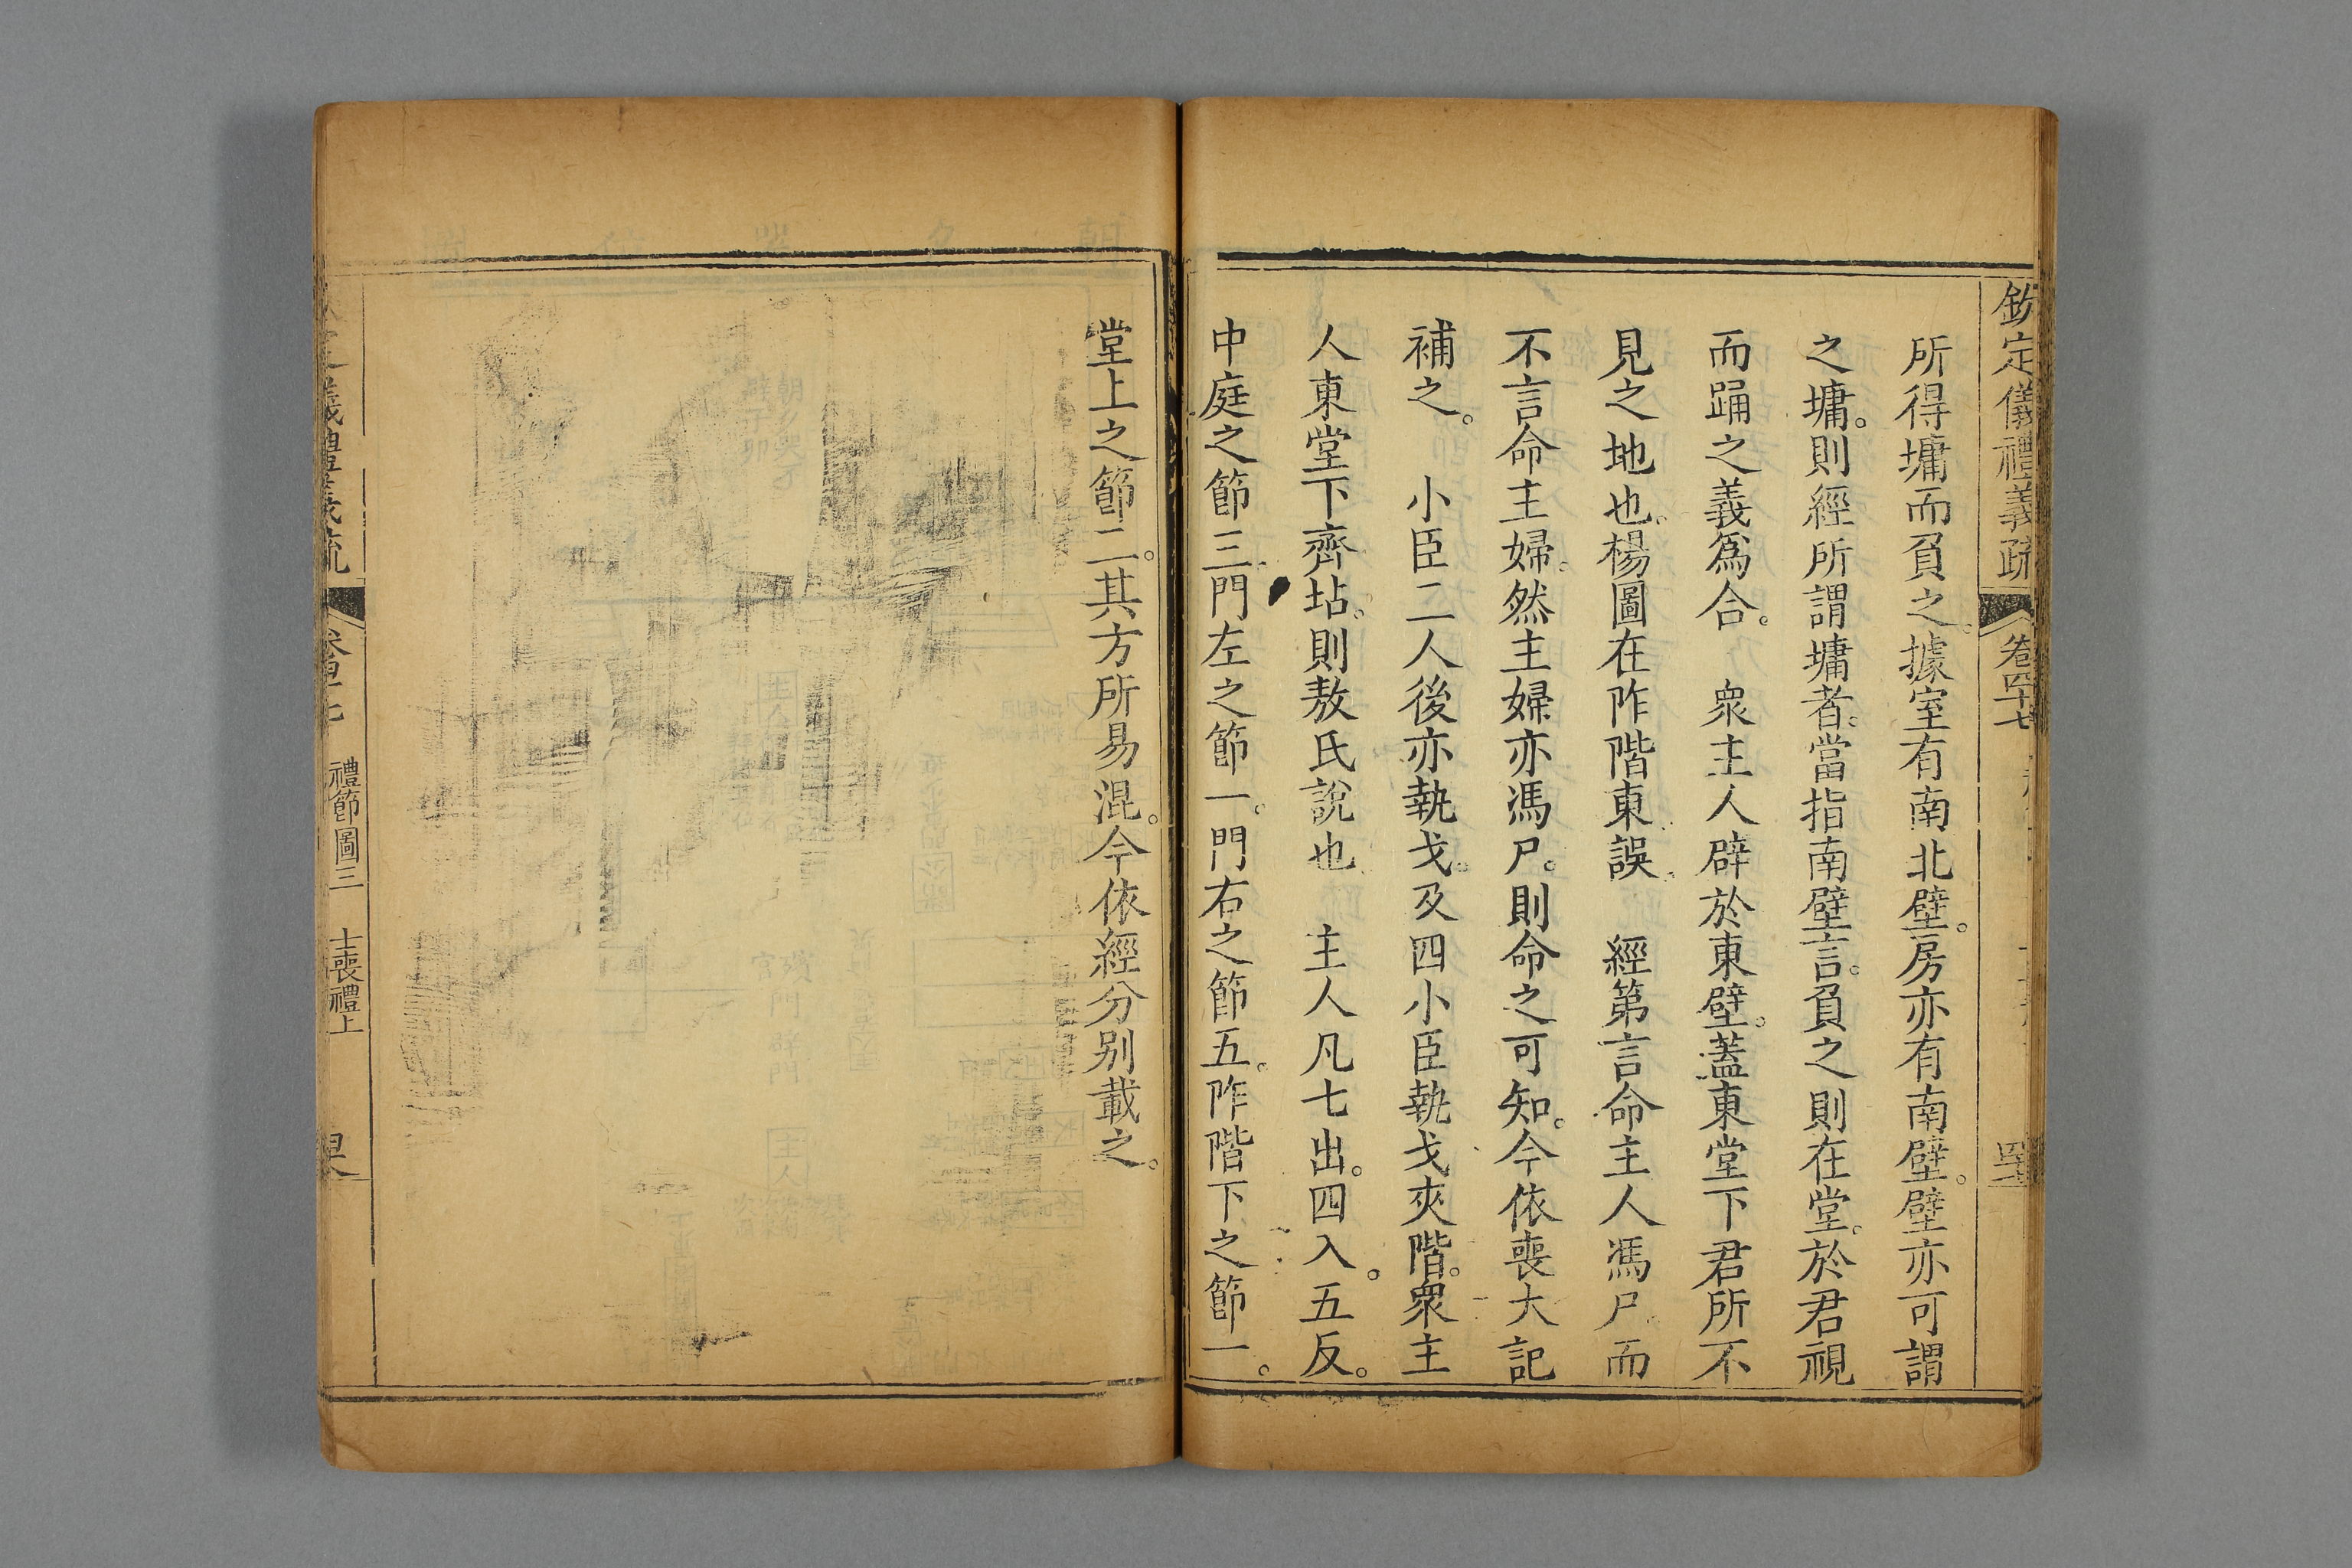 欽定儀禮義疏 卷四十七
所得墉而負之。據室有南北壁。房亦有南壁。壁亦可謂
之墉。則經所謂墉者。當指南壁言。負之則在堂。於君視
而踊之義爲合。 衆主人辟於東壁。蓋東堂下君所不
見之地也。楊圖在阼階東誤。 經第言命主人馮尸。而
不言命主婦。然主婦亦馮尸。則命之可知。今依喪大記
補之。 小臣二人後亦執戈。及四小臣執戈夾階。衆主
人東堂下齊坫。則敖氏說也 主人凡七出。四入。五反。
中庭之節三。門左之節一。門右之節五。阼階下之節一。
堂上之節二。其方所易混。今依經分別載之。
儀禮義疏 卷四十七 禮節圖三 士喪禮上